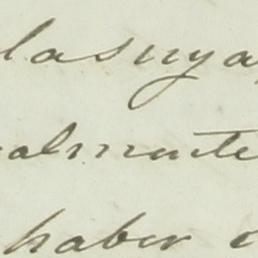 las suya
almente
haber